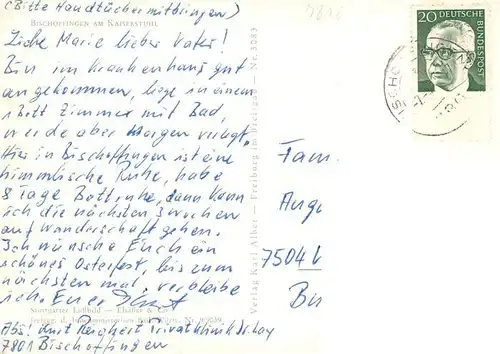 (Bitte Handtücher mitbringen)
BISCHOFFINGEN AM KAISERSTUHL
Liebe Marie lieber Vater!
Bin im Krankenhaus gut
angekommen, liege in einem
1 Bett Zimmer mit Bad,
werde aber Morgen verlegt.
Hier in Bischoffingen ist eine
himmlische Ruhe, habe
8 Tage Bettruhe, dann kann
ich die nächsten 3 wochen
auf wanderschaft gehen.
Ich wünsche Euch ein
schönes Osterfest, bis zum
nächsten mal, verbleibe
ich Euer
Stuttgarter Luftbild — Elsäßer & Co.
freigeg. d. Innenministerium Nr. 9/9259
Abs! Kurt Reichert Privatklinik Dr. Lay
7801 Bischoffingen
Verlag Karl Alber — Freiburg im Breisgau — Nr. 3283
20 DEUTSCHE
BUNDESPOST
Fam.
7504